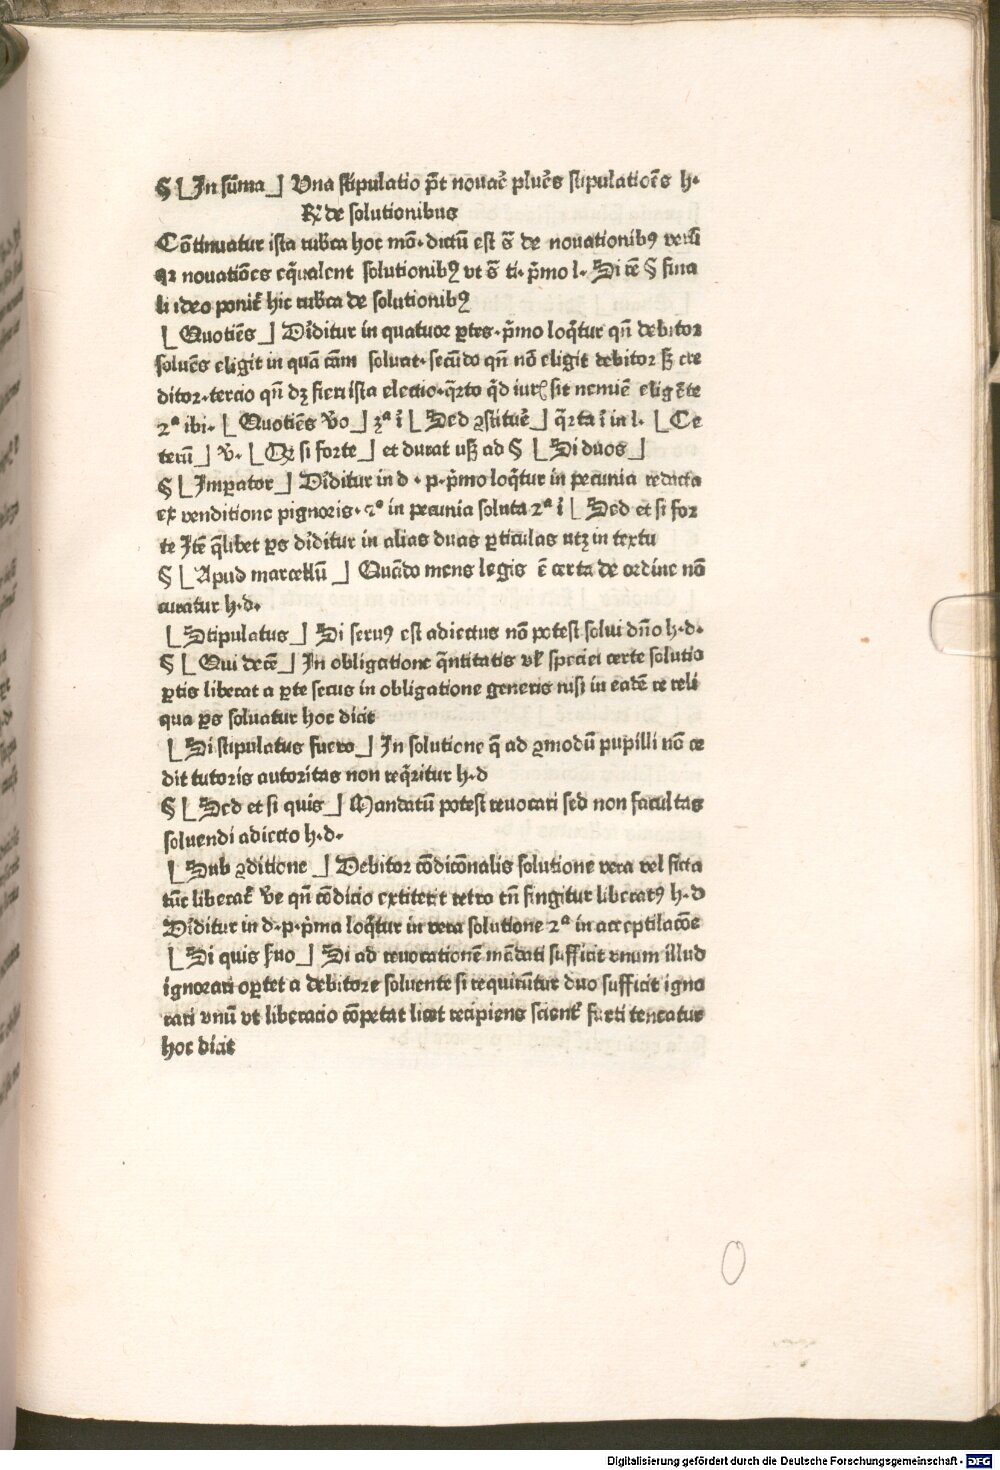 § [In sum̄a] Una stipulatio p̄t nouaē plur̄es stipulatiōes h·
R̄ de solutionibus
Cōntinuatur ista rub̄ca hoc mō· dictū est s̄ de nouationibꝰ verū
qꝛ nouatiōes eq̄ualent solutionibꝰ vt s̄ ti· p̄mo l· Si rē § fina
li ideo ponit̄ hic rub̄ca de solutionibꝰ
[Quotiēs] Diuiditur in quatuor ꝑtes· p̄mo loq̄tur qn̄ debitor
soluēs eligit in quā cām soluat· secūdo qn̄ nō eligit debitor sꝫ cre
ditor· tercio qn̄ dꝫ fieri ista electio· q̄rto q̄d iurꝭ sit nemiē eligēte
2ª ibi· [Quotiēs v̄o] 3ª ī [Sed ꝯstituē] q̄rta ī in l· [Ce
terū] v̄· [Qꝫ si forte] et durat usꝫ ad § [Si duos]
§ [Imꝑator] Diuiditur in d· p· p̄mo loq̄tur in pecunia redacta
ex venditione pignoris· 2º in pecunia soluta 2ª ī [Sed et si for
te Itē q̄libet ꝑs diuiditur in alias duas ꝑticulas utꝫ in textu
§ [Apud marcellū] Quādo mens legis ē certa de ordine nō
curatur h·d·
[Stipulatus] Si seruꝰ est adiectus nō potest solui dn̄o h·d·
§ [Qui decē] In obligatione q̄ntitatis vl̄ speciei certe solutio
ꝑtis liberat a ꝑte secus in obligatione generis nisi in eadē re reli
qua ꝑs soluatur hoc dicit
[Si stipulatus fuero] In solutione q̄ ad ꝯmodū pupilli nō ce
dit tutoris autoritas non req̄ritur h·d
§ [Sed et si quis] Mandatū potest reuocari sed non facultas
soluendi adiecto h·d·
[Sub ꝯditione] Debitor cōdicōnalis solutione vera vel ficta
tūc liberat̄ v̄e qn̄ cōdicio extiterit retro tn̄ fingitur liberatꝰ h·d
Diuiditur in d·p· p̄ma loq̄tur in vera solutione 2ª in acceptilacōe
[Si quis suo] Si ad reuocationē mādati sufficit vnum illud
ignorari oꝑtet a debitore soluente si requirūtur duo sufficit igno
rari vnū vt liberacio cōpetat licet recipiens scient̄ furti teneatur
hoc dicit
O
Digitalisierung gefördert durch die Deutsche Forschungsgemeinschaft - DFG